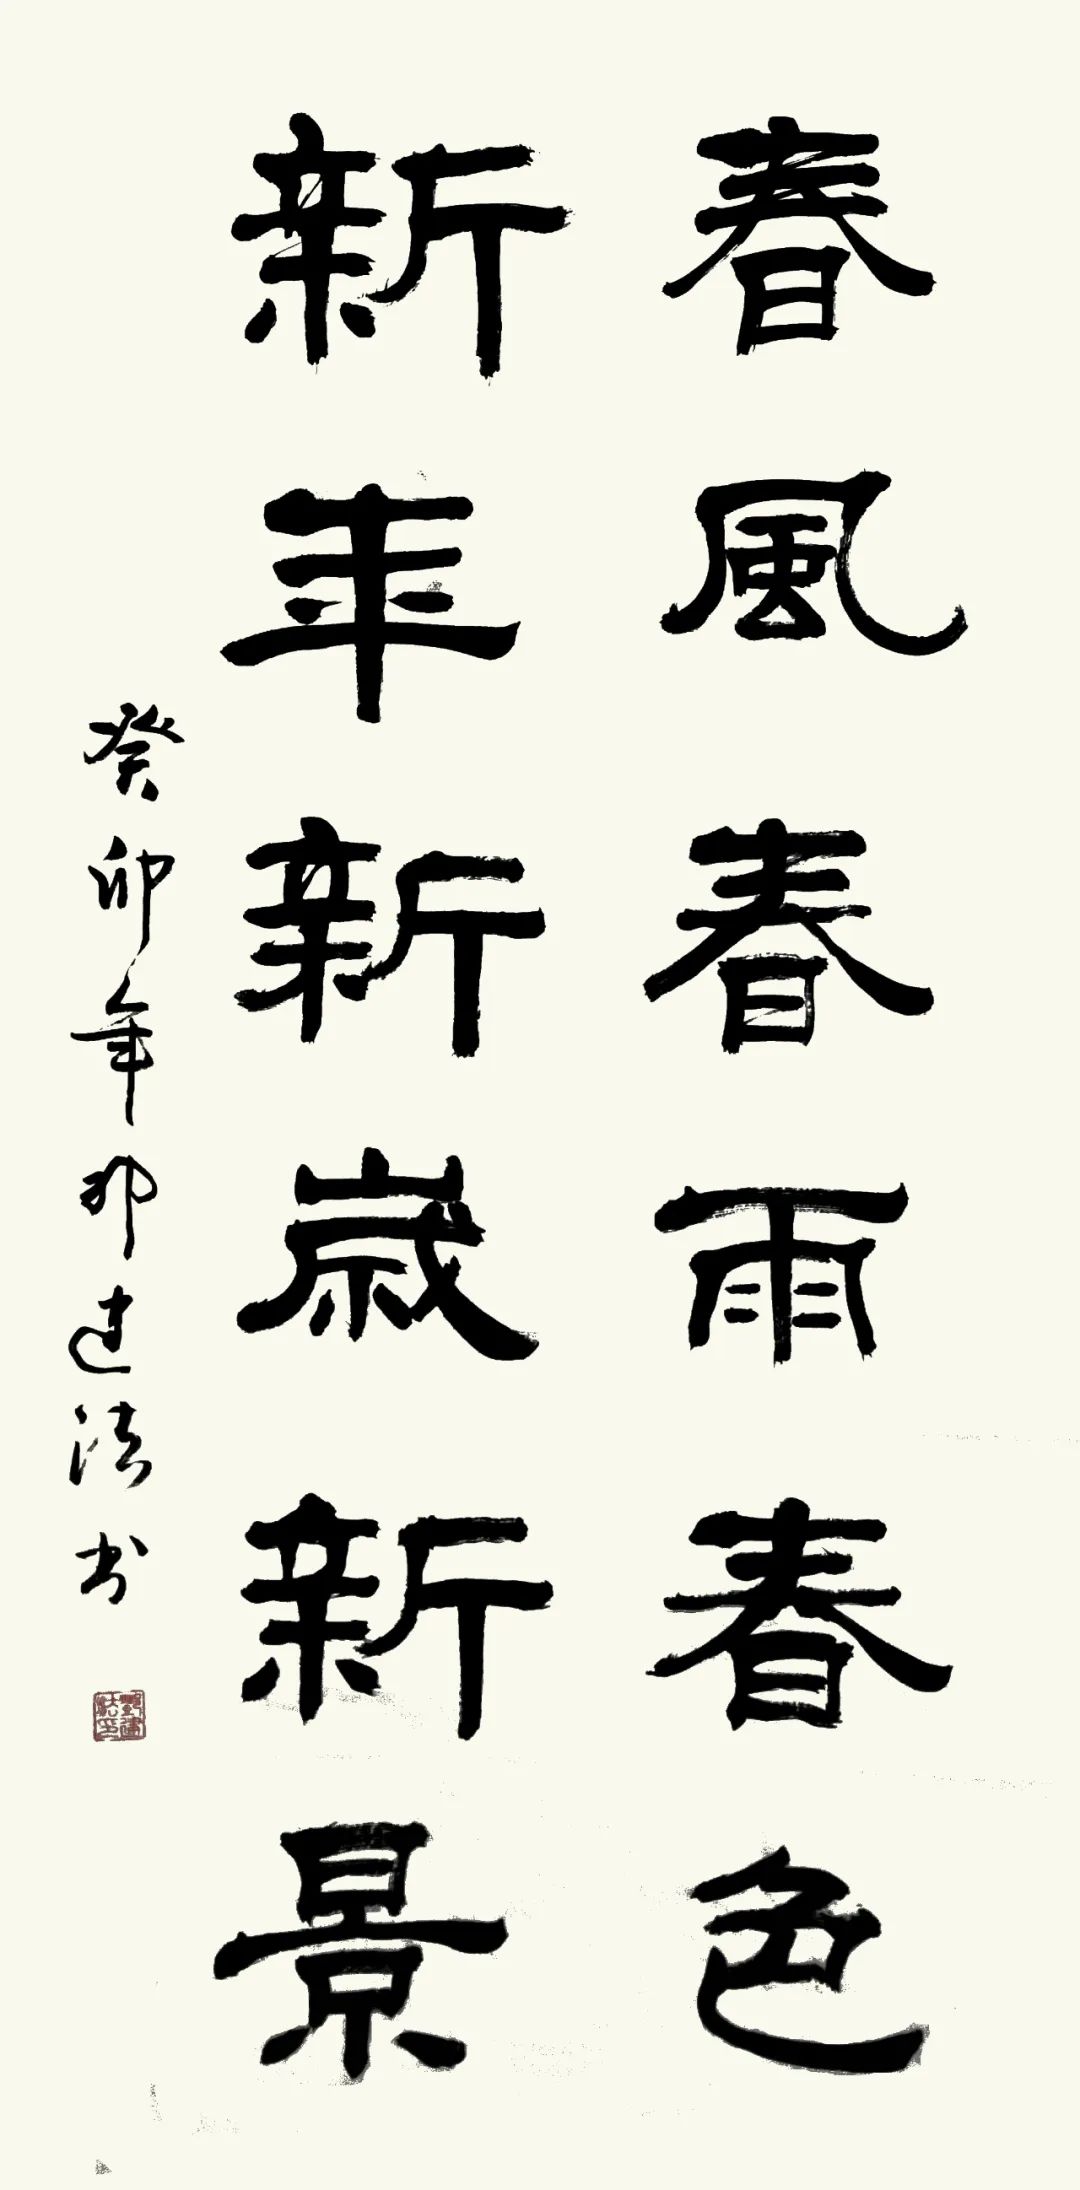 春風春雨春色
新年新歲新景
癸卯年建法书